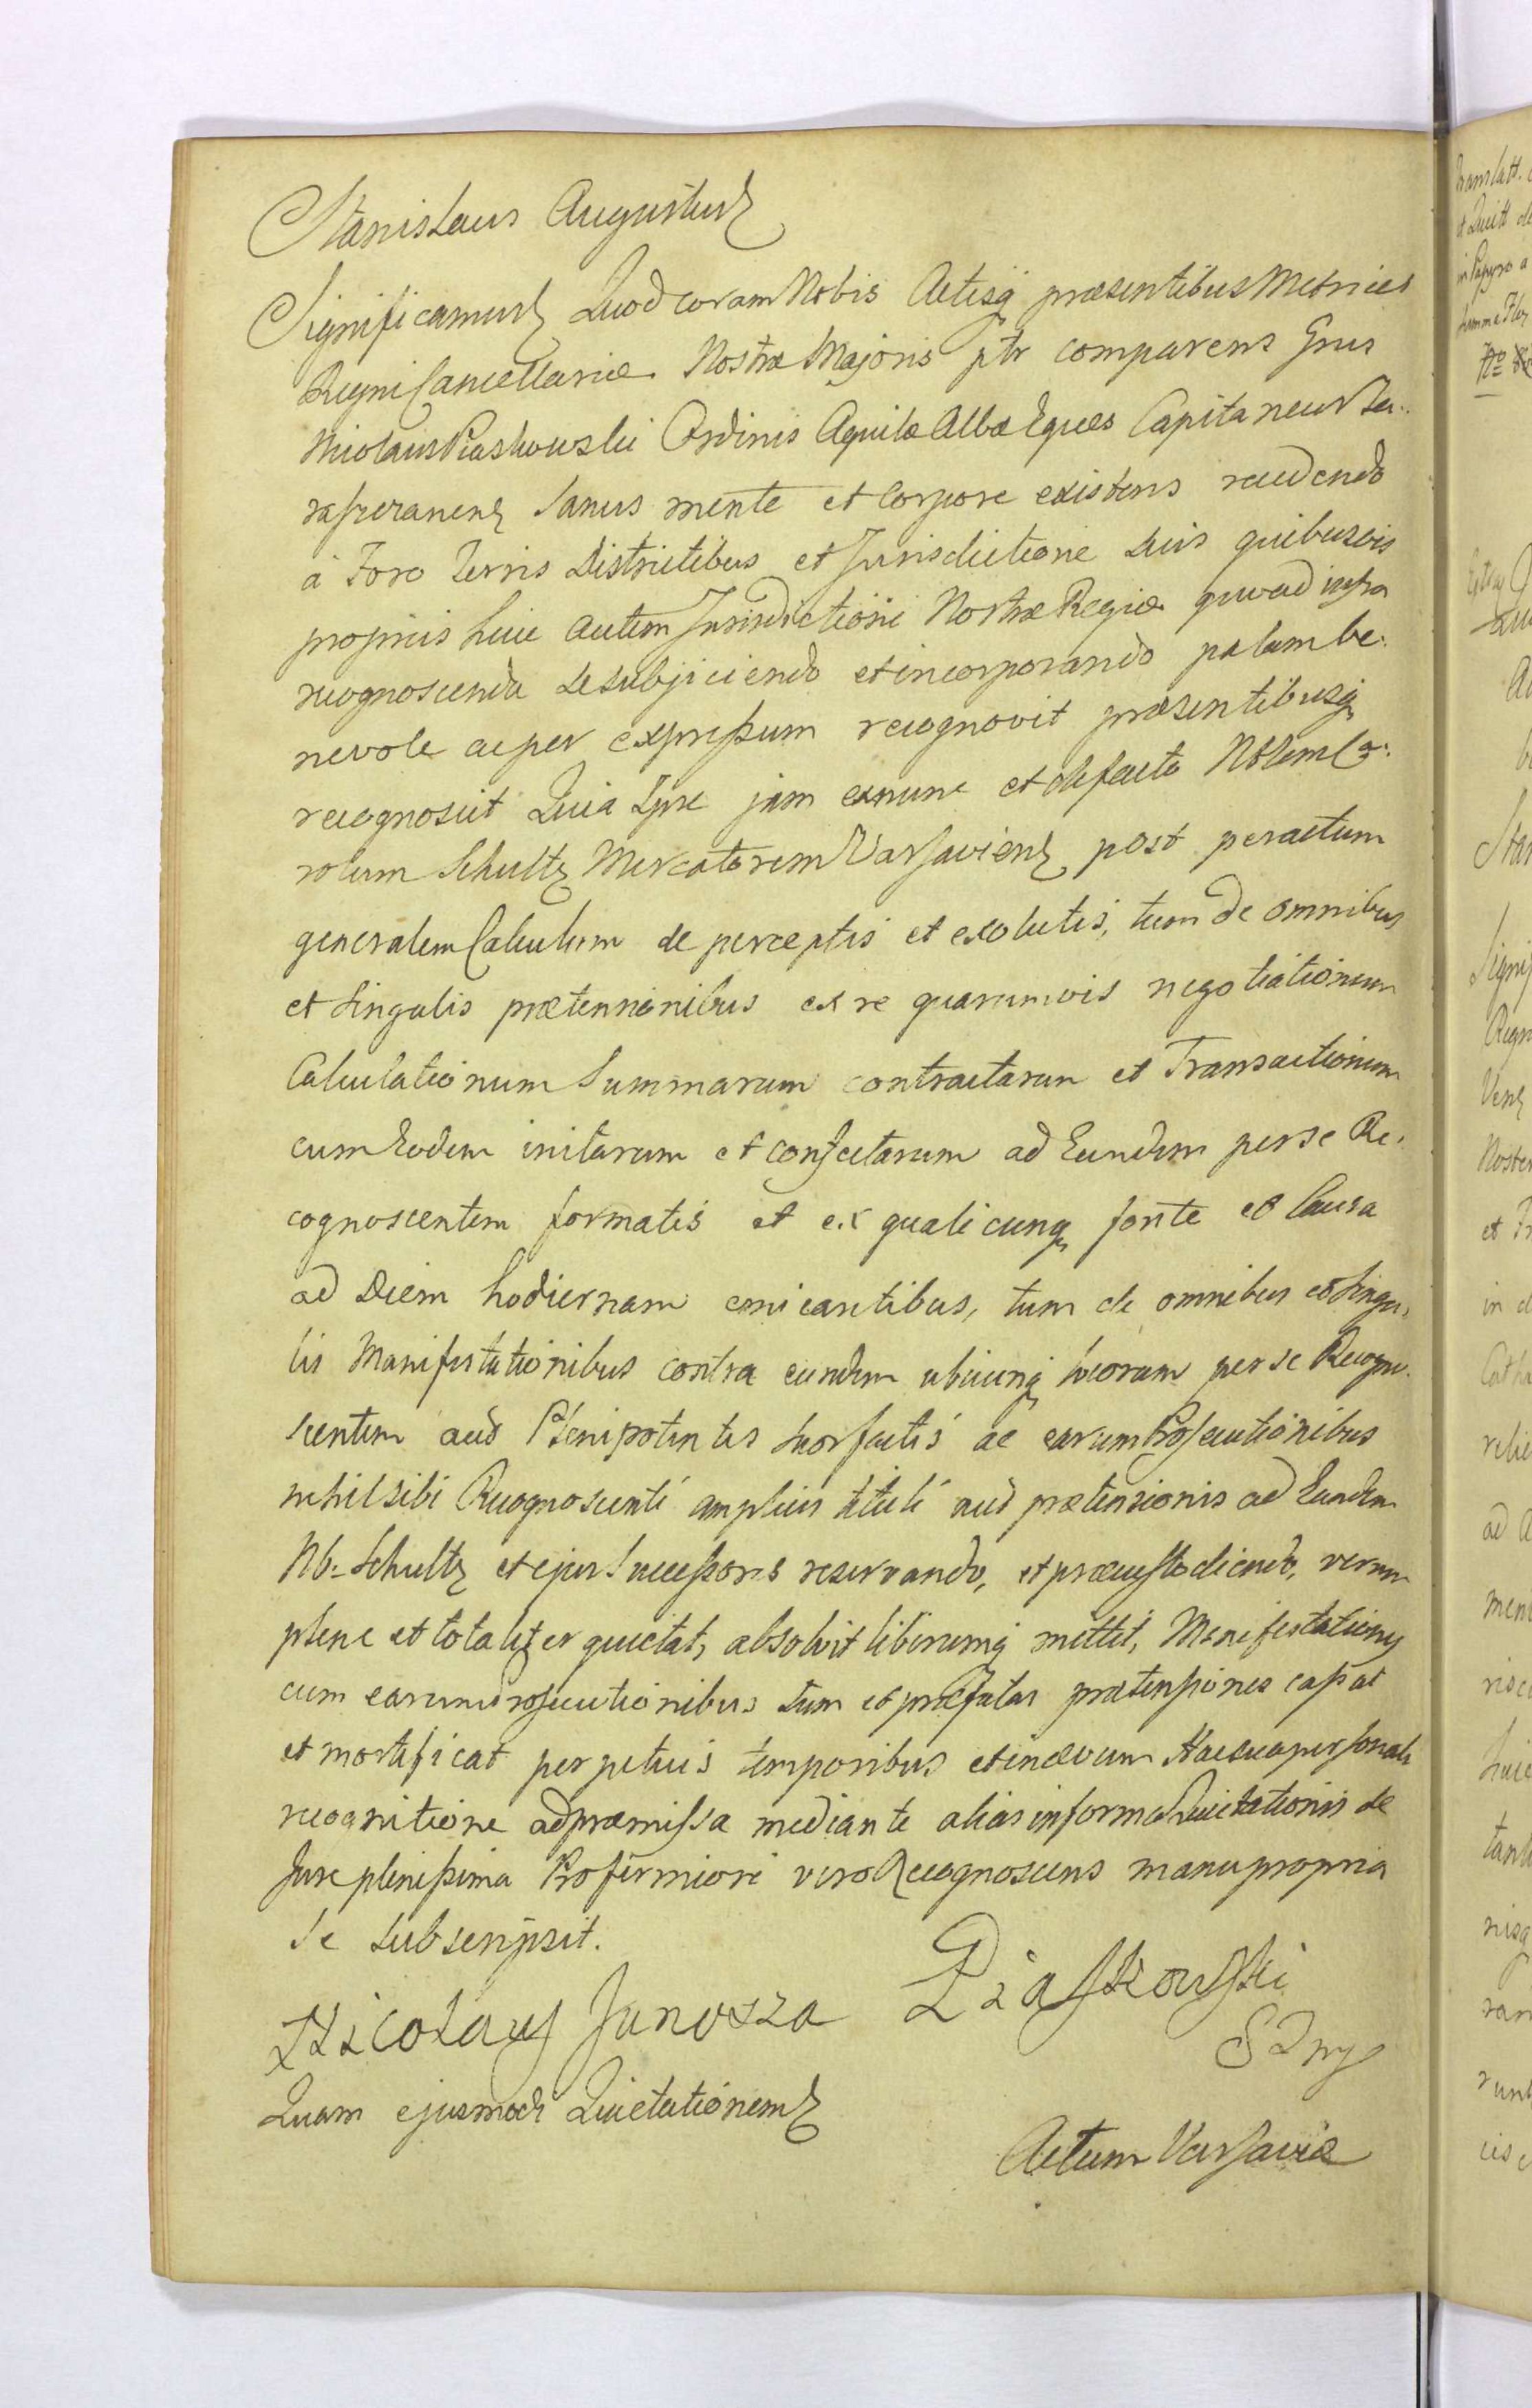 Stanislaus Augustus
Significamus Quod coram Nobis Actisq praesentibus Metrices
Regni Cancellariae Nostrae Majoris ptr comparens Gnus
Nicolaus Piaskowski Ordinis Aquilae Albae Eques Capitaneus Ta-
raszczanens Sanus mente et Corpore existens recedendo
à Foro Terris Districtibus et Jurisdictione Suis quibusvis
propriis huic autem Jurisdictioni Nostrae Regiae quoad infra
recognoscenda se subjiciendo et incorporando palam be-
nevole ac per expressum recognovit praesentibusq
recognoscit Quia Ipse jam exnunc et defacto Nblem Ca-
rolum Schultz Mercatorem Varsaviens post peractum
generalem Calculum de perceptis et exolutis, tum de omnibus
et Singulis praetensionibus ex re quarumvis negotiationum
Calculationum Summarum contractarum et Transactionum
cum Eodem initarum et confectarum ad Eundem per se Re-
cognoscentem formatis et ex qualicunq fonte et Causa
ad Diem hodiernam emicantibus, tum de omnibus et Singu-
lis Manifestationibus contra eundem ubicunq locorum per se Recogno-
scentem aud Plenipotentes suos factis ac earum Prosecutionibus
nihil sibi Recognoscenti amplius tituli aud praetensionis ad Eundem
Nb. Schultz et ejus Successores reservando, et praecustodiendo, verum
plene et totaliter quietat, absolvit liberumq mittit, Manifestationes
cum earum prosecutionibus tum et praefatas praetensiones cassat
et mortificat perpetuis temporibus et in aevum Hac sua personali
recognitione ad praemissa mediante alias in forma Quietationis de
Jure plenissima Pro firmiori vero Recognoscens manu propria
se subscripsit.
Nicolaus Junosza Piaskowski
Quam ejusmodi Quietationem
Actum Varsaviae